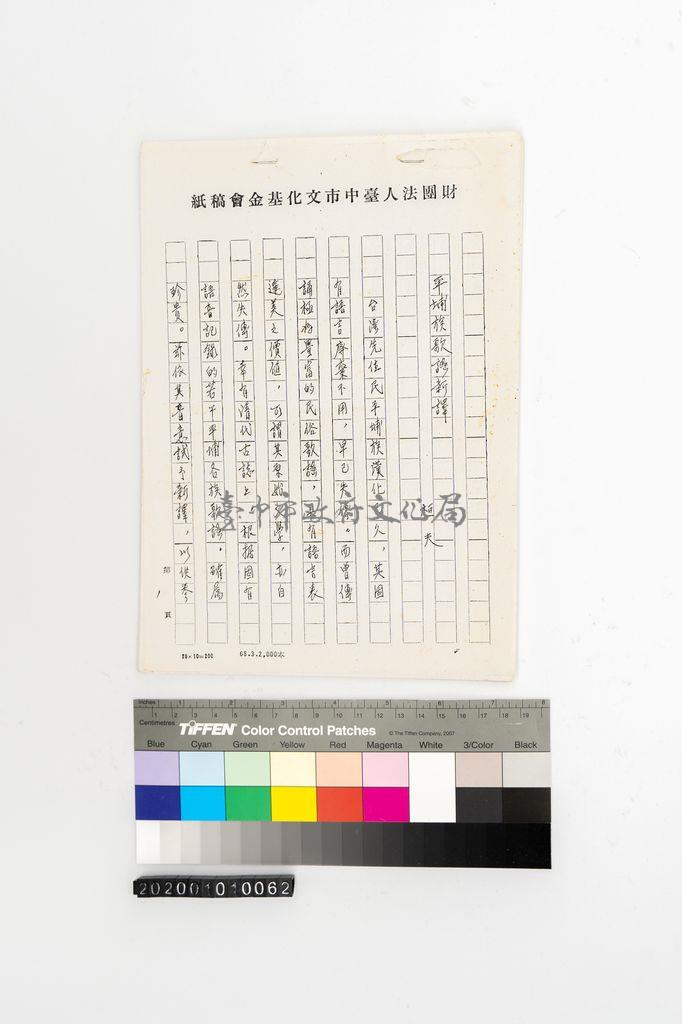 財團法人臺中市文化基金會稿紙
平埔族歌謠新譯
柯夫
台灣先住民平埔族漢化 久,其固
有語言廢棄不用,早已失傳。而曾傳
誦極為豐富的民俗歌謠, 有語言表
達美之價值,可謂其原始 學,亦自
然失傳。幸有清代古誌上根据固有
語音記錄的若干平埔各族歌謠,確屬
珍貴。茲依其音意試予新譯,以供參
第 1 頁
20×10=200
68.3.2,000本
臺中市政府文化局
inches 1 2 3 4 5 6 7 8
Centimetres 1 2 3 4 5 6 7 8 9 10 11 12 13 14 15 16 17 18 19
TIFFEN Color Control Patches © The Tiffen Company, 2007
Blue Cyan Green Yellow Red Magenta White 3/Color Black
202001010062